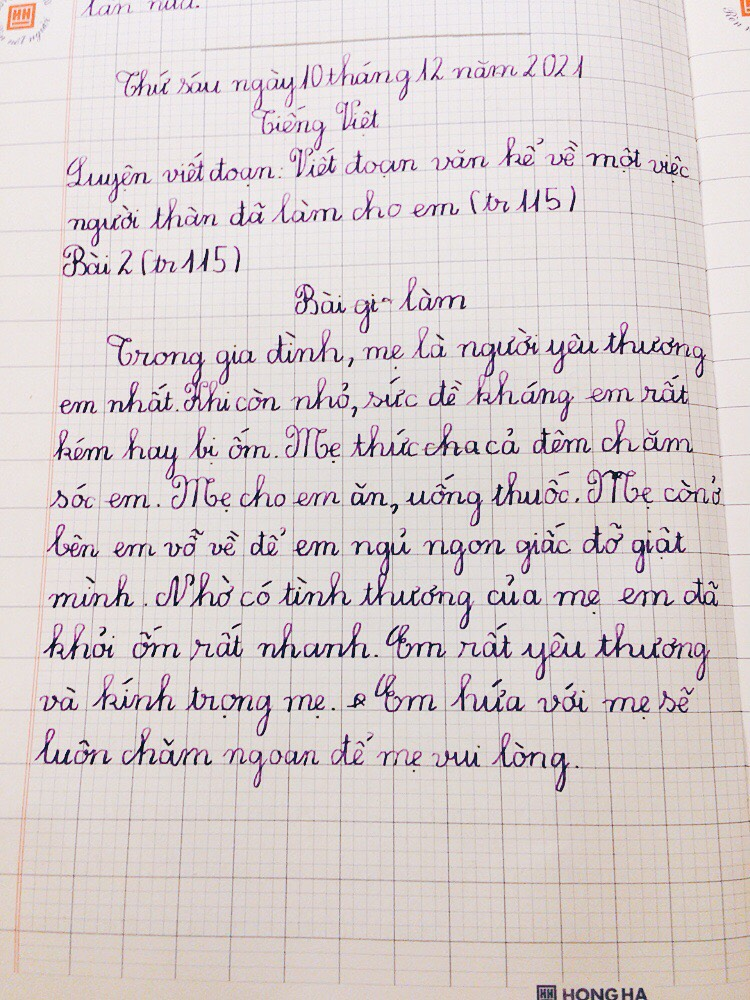 lần nữa.
Thứ sáu ngày 10 tháng 12 năm 2021
Tiếng Việt
Luyện viết đoạn: Viết đoạn văn kể về một việc
người thân đã làm cho em (tr 115)
Bài 2 (tr 115)
Bài gi làm
Trong gia đình, mẹ là người yêu thương
em nhất. Khi còn nhỏ, sức đề kháng em rất
kém hay bị ốm. Mẹ thức cha cả đêm chăm
sóc em. Mẹ cho em ăn, uống thuốc. Mẹ còn ở
bên em vỗ về để em ngủ ngon giấc đỡ giật
mình. Nhờ có tình thương của mẹ em đã
khỏi ốm rất nhanh. Em rất yêu thương
và kính trọng mẹ. Em hứa với mẹ sẽ
luôn chăm ngoan để mẹ vui lòng.
HH HONG HA